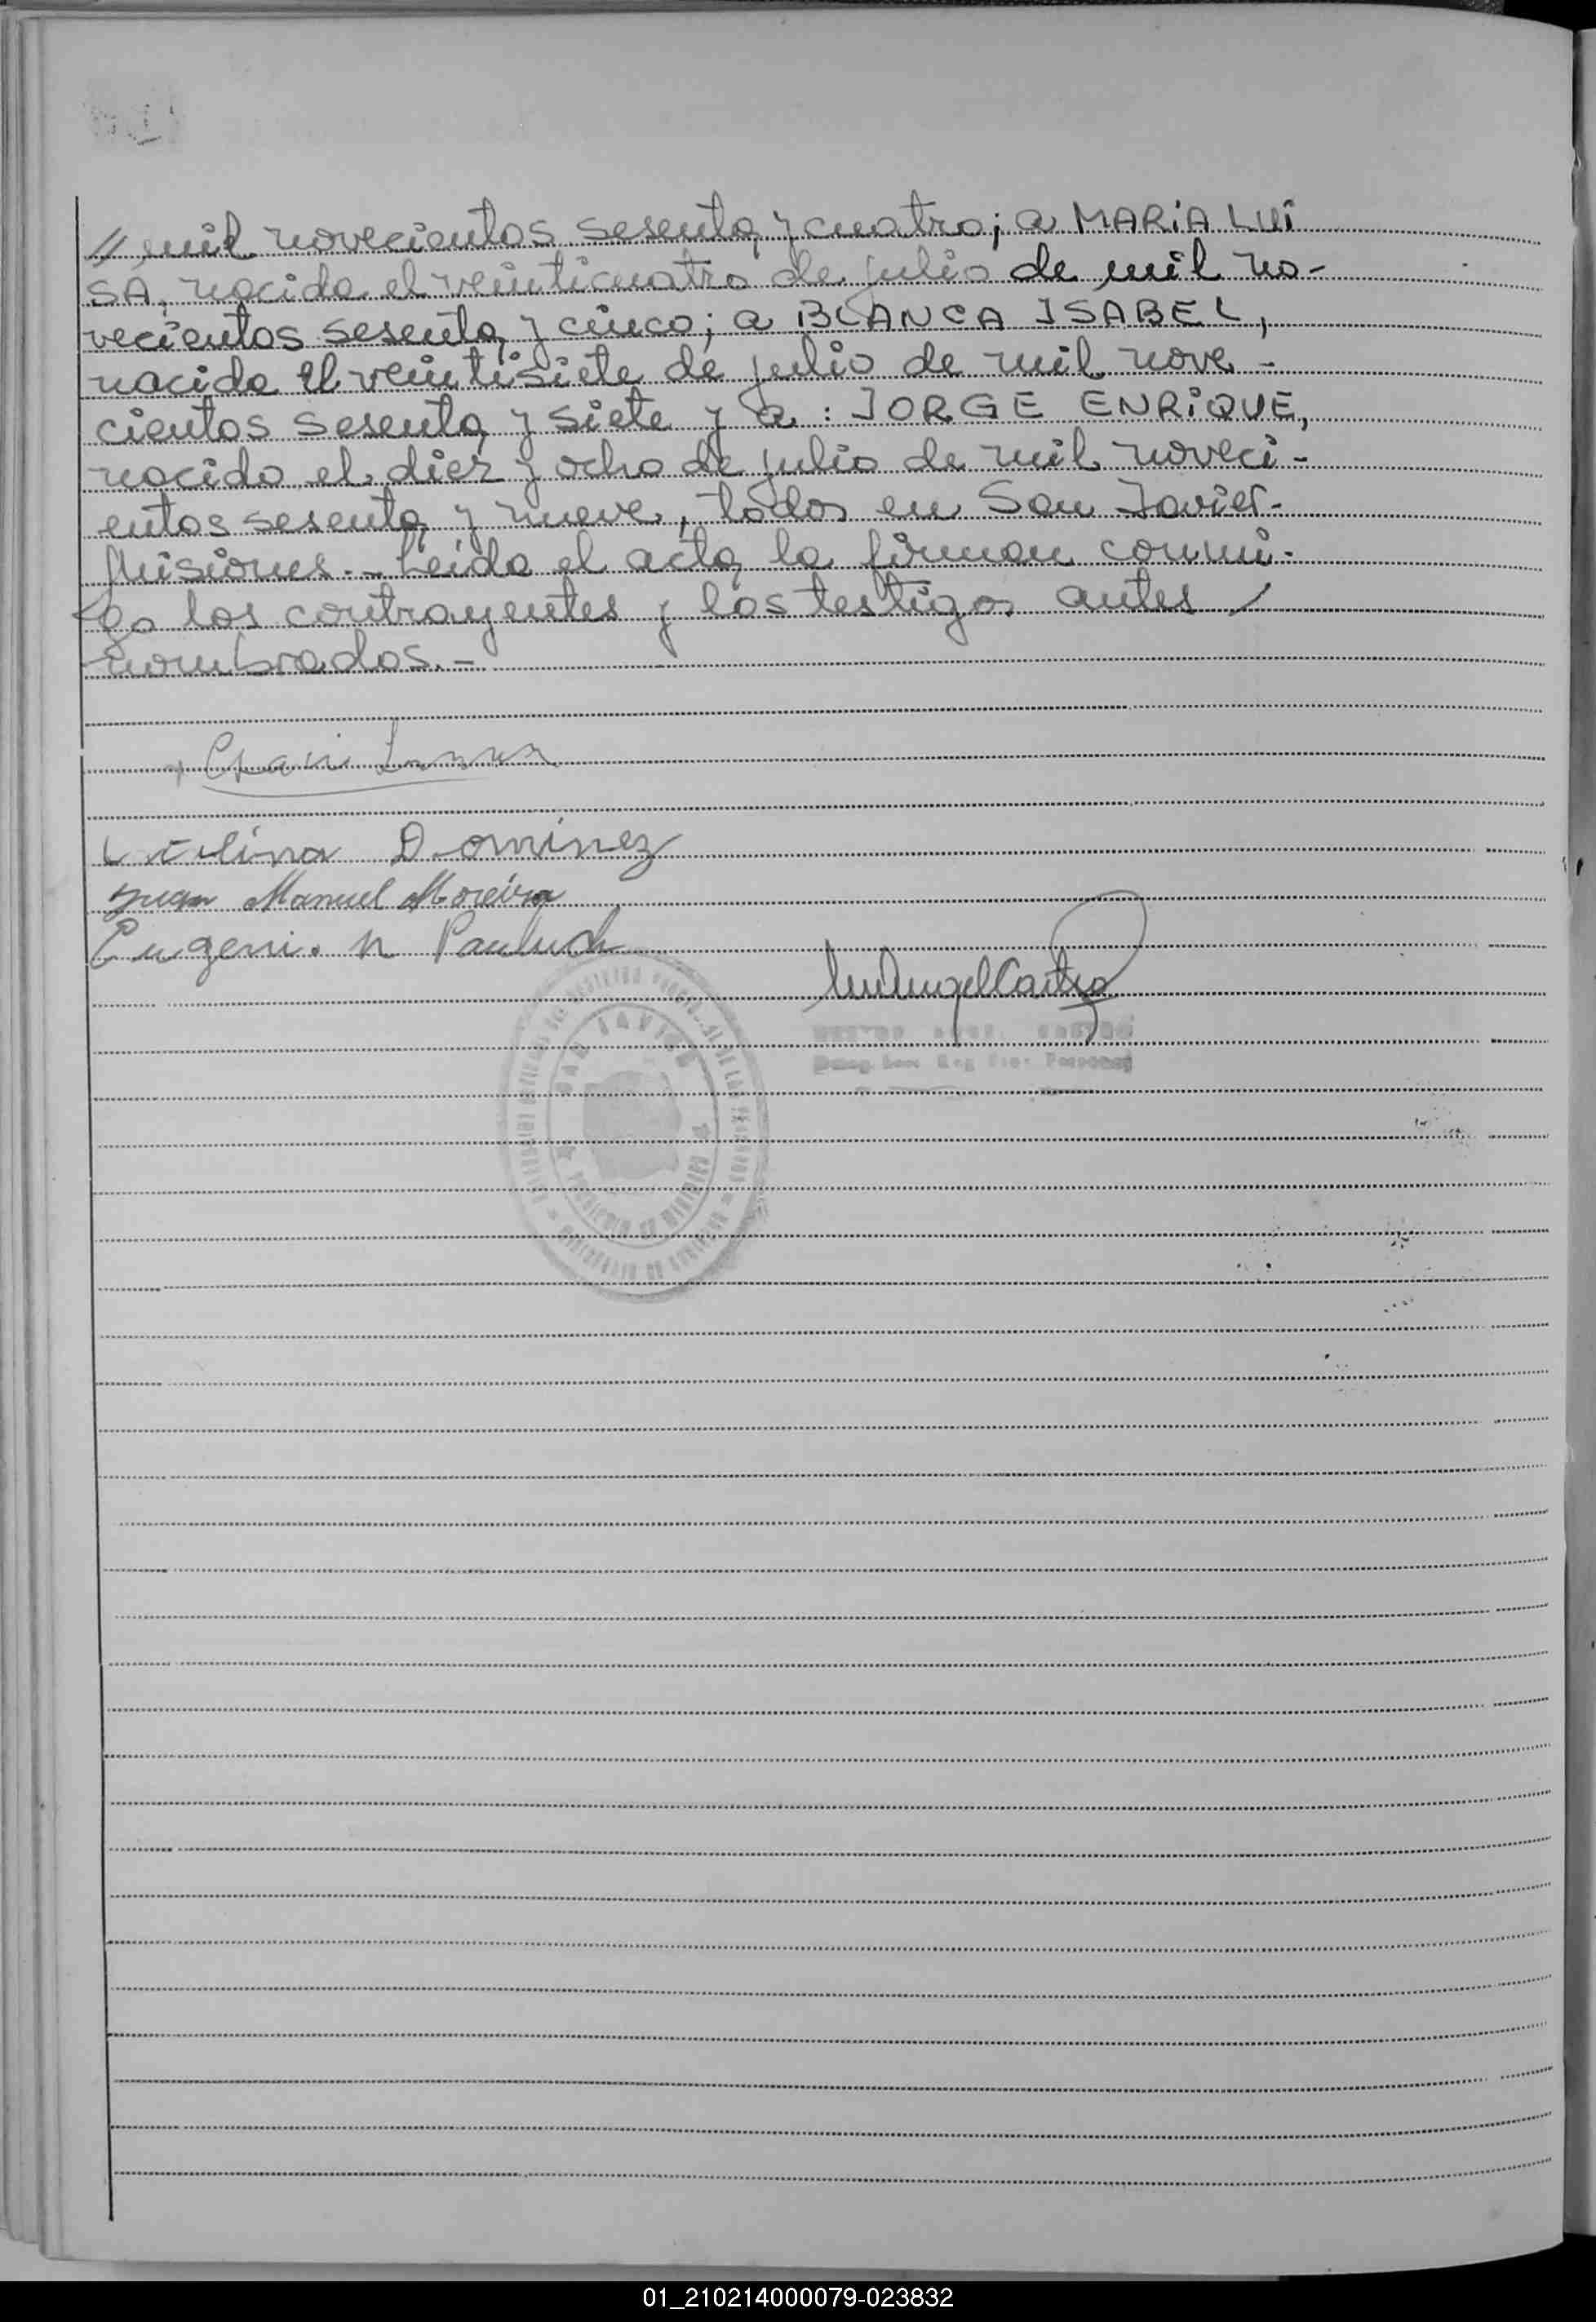 // mil novecientos sesenta y cuatro; a MARIA LUI
SA, nacida el veinticuatro de julio de mil no-
vecientos sesenta y cinco; a BLANCA ISABEL,
nacida el veintisiete de julio de mil nove-
cientos sesenta y siete y a: JORGE ENRIQUE,
nacido el diez y ocho de julio de mil noveci-
entos sesenta y nueve, todos en San Javier-
Misiones.- Leida el acta la firman conmi-
go los contrayentes y los testigos antes
nombrados.-
Dominez
Juan Manuel Moreira
Eugeni. N Pauluch
Angel Castro
SAN JAVIER
PROVINCIA DE MISIONES
01_210214000079-023832